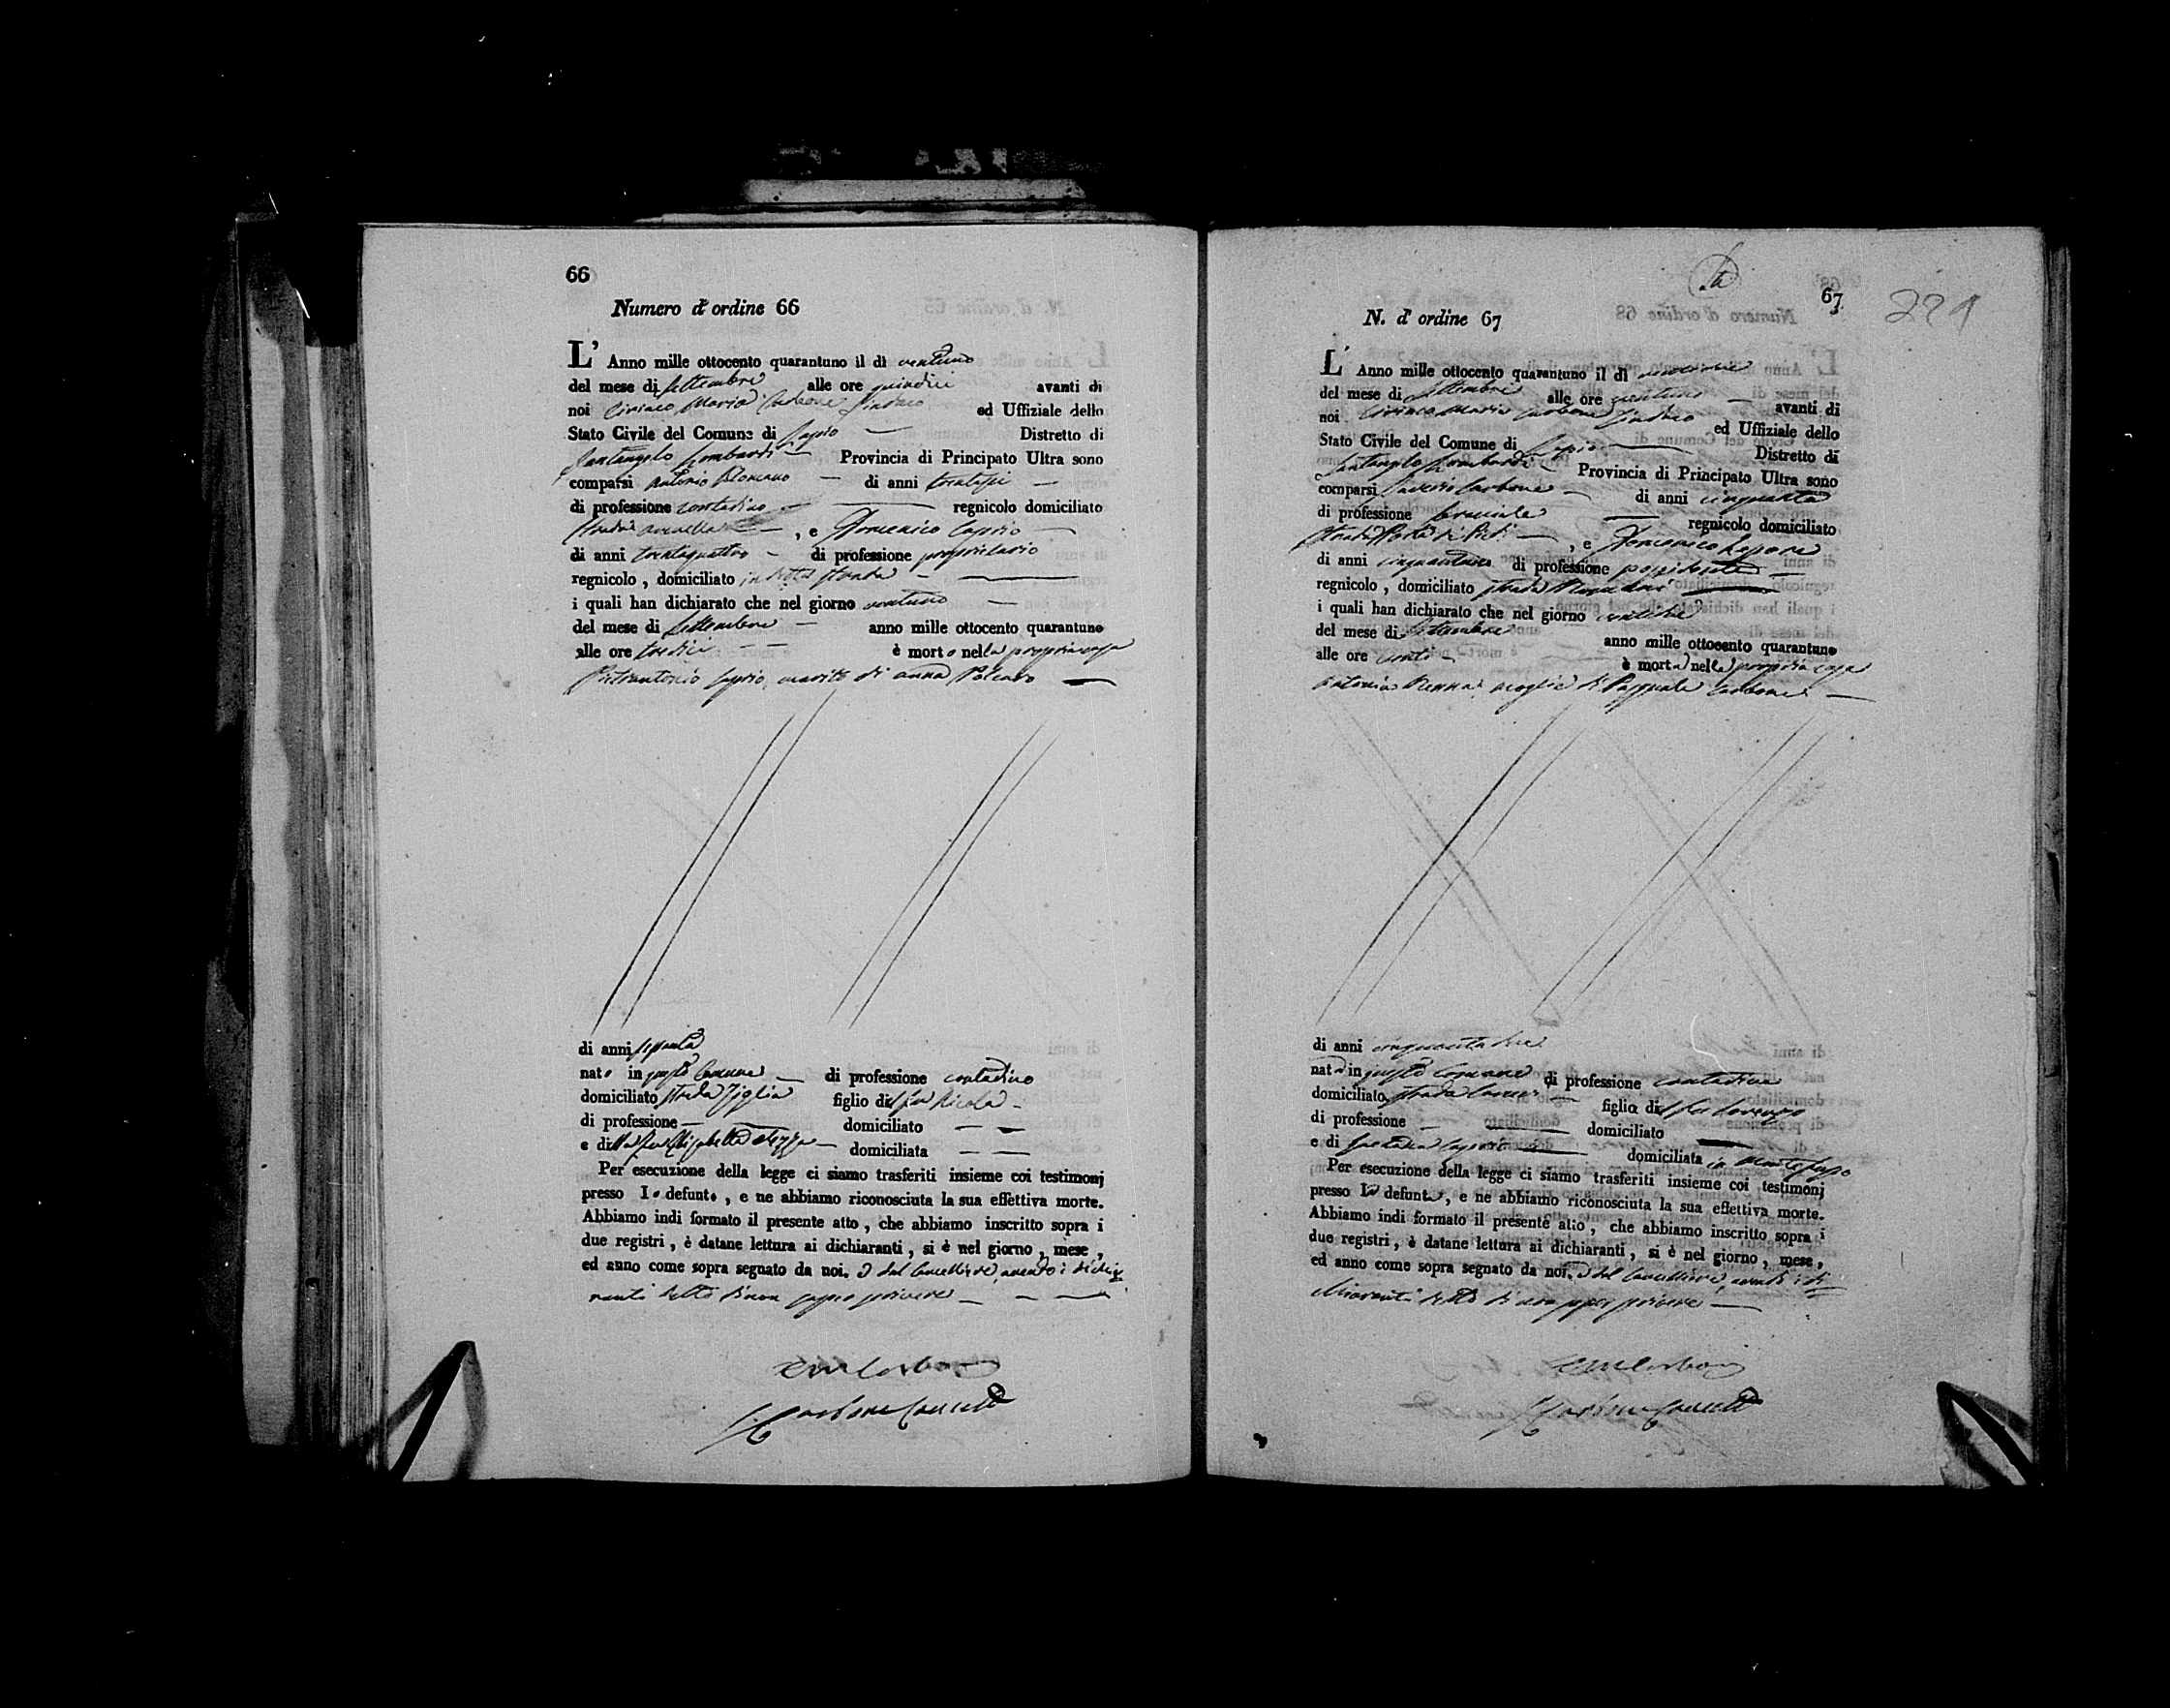 66
Numero d'ordine 66
L' Anno mille ottocento quarantuno il dì ventuno
del mese di Settembre alle ore quindici avanti di
noi Ciriaco Maria Carbone Sindaco ed Uffiziale dello
Stato Civile del Comune di Lapio Distretto di
Santangelo Lombardi Provincia di Principato Ultra sono
comparsi Antonio Romano di anni trentasei
di professione contadino regnicolo domiciliato
strada , e Domenico Caprio
di anni trentaquattro di professione proprietario
regnicolo , domiciliato in detta strada
i quali han dichiarato che nel giorno ventuno
del mese di Settembre anno mille ottocento quarantuno
alle ore tredici è morto nella propria casa
Pietrantonio marito di Anna
di anni settanta
nato in questo Comune di professione contadino
domiciliato strada figlio del fu Nicola
di professione domiciliato
e della fu Elisabetta domiciliata
Per esecuzione della legge ci siamo trasferiti insieme coi testimonj
presso lo defunto , e ne abbiamo riconosciuta la sua effettiva morte.
Abbiamo indi formato il presente atto , che abbiamo inscritto sopra i
due registri , è datane lettura ai dichiaranti , si è nel giorno , mese ,
ed anno come sopra segnato da noi. e dal Cancelliere, avendo i dichia
ranti detto di non sapere scrivere
CMCarbone
Carbone Cancell
67
229
N. d' ordine 67
L' Anno mille ottocento quarantuno il dì
del mese di Settembre alle ore ventuno avanti di
noi Ciriaco Maria Carbone Sindaco ed Uffiziale dello
Stato Civile del Comune di Lapio Distretto di
Santangelo Lombardi Provincia di Principato Ultra sono
comparsi Saverio Carbone di anni cinquanta
di professione bracciale regnicolo domiciliato
strada , e Domenico Lepore
di anni di professione possidente
regnicolo , domiciliato strada
i quali han dichiarato che nel giorno
del mese di Settembre anno mille ottocento quarantuno
alle ore venti è morta nella propria casa
Antonia Renna moglie di Pasquale Carbone
di anni cinquantadue
nata in questo Comune di professione contadina
domiciliato strada figlia del fu Lorenzo
di professione domiciliato
e di domiciliata in Montefuso
Per esecuzione della legge ci siamo trasferiti insieme coi testimonj
presso la defunta , e ne abbiamo riconosciuta la sua effettiva morte.
Abbiamo indi formato il presente atto , che abbiamo inscritto sopra i
due registri , è datane lettura ai dichiaranti , si è nel giorno , mese ,
ed anno come sopra segnato da noi. e dal Cancelliere, avendo i di
chiaranti detto di non saper scrivere
CMCarbone
Carbone Cancell